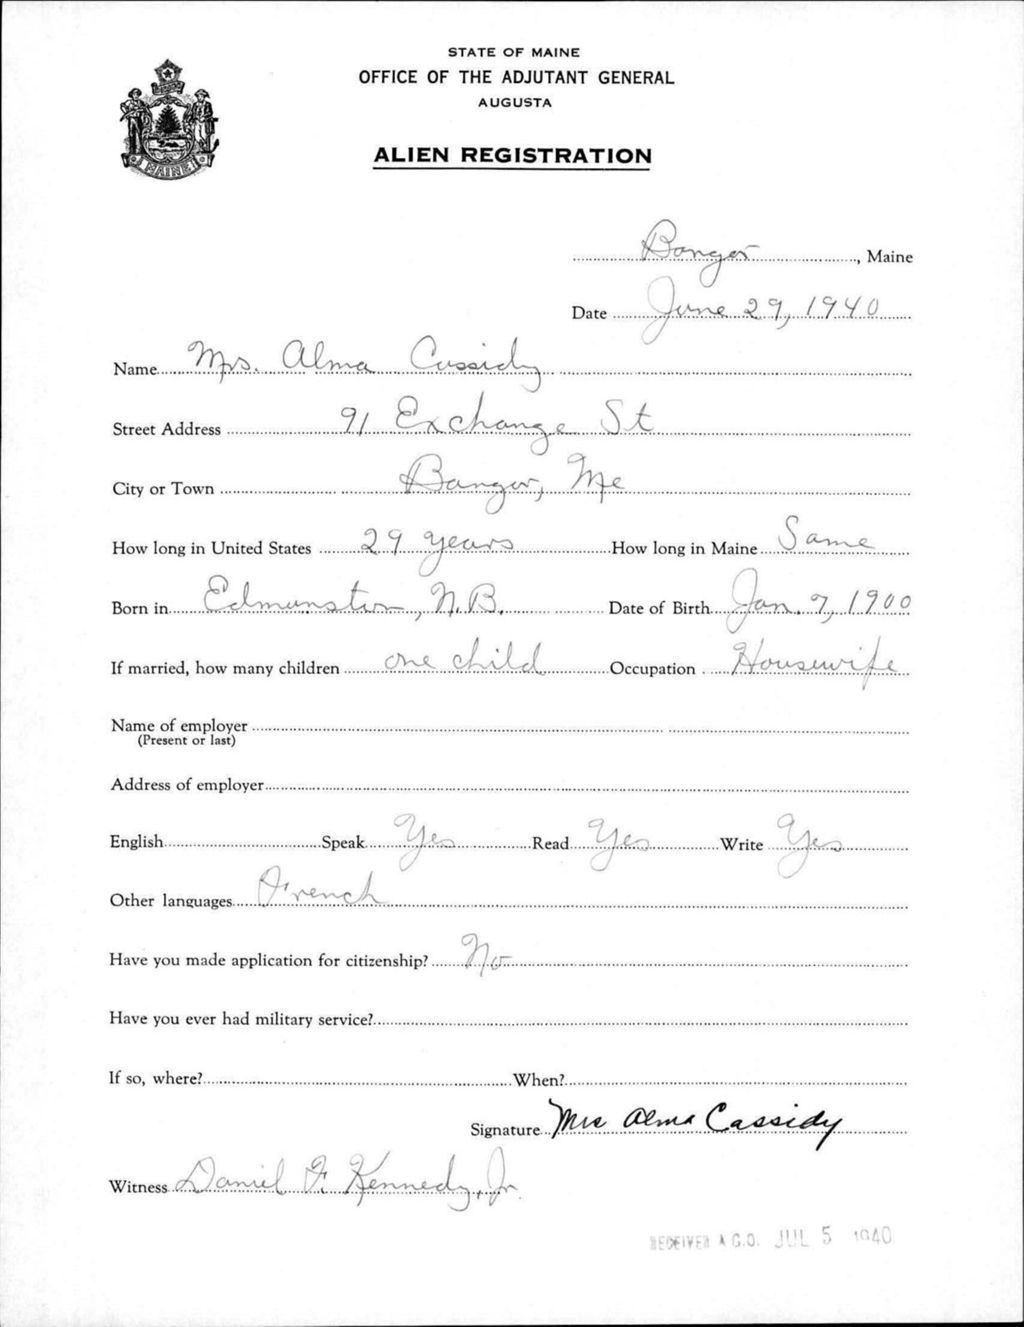 STATE OF MAINE
OFFICE OF THE ADJUTANT GENERAL
AUGUSTA
ALIEN REGISTRATION
MAINE
Bangor, Maine
Date June 29, 1940
Name Mrs. Alma Cassidy
Street Address 91 Exchange St
City or Town Bangor, Me
How long in United States 29 years How long in Maine Same
Born in Edmunston, N.B. Date of Birth Jan. 7, 1900
If married, how many children one child Occupation Housewife
Name of employer
(Present or last)
Address of employer
English Speak Yes Read Yes Write Yes
Other languages French
Have you made application for citizenship? No
Have you ever had military service?
If so, where? When?
Signature Mrs Alma Cassidy
Witness Daniel F. Kennedy, Jr.
RECEIVED A.G.O. JUL 5 1940